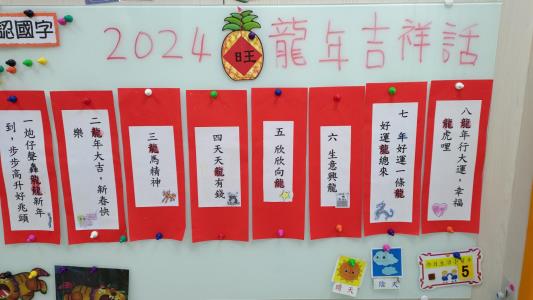 認國字
2024 旺 龍年吉祥話
一 炮仔聲轟龍龍新年
到，步步高升好兆頭
二 龍年大吉，新春快
樂
三 龍馬精神
四 天天龍有錢
五 欣欣向龍
六 生意興龍
七 年好運一條龍
好運龍總來
八 龍年行大運，幸福
龍虎哩
晴天
陰天
5